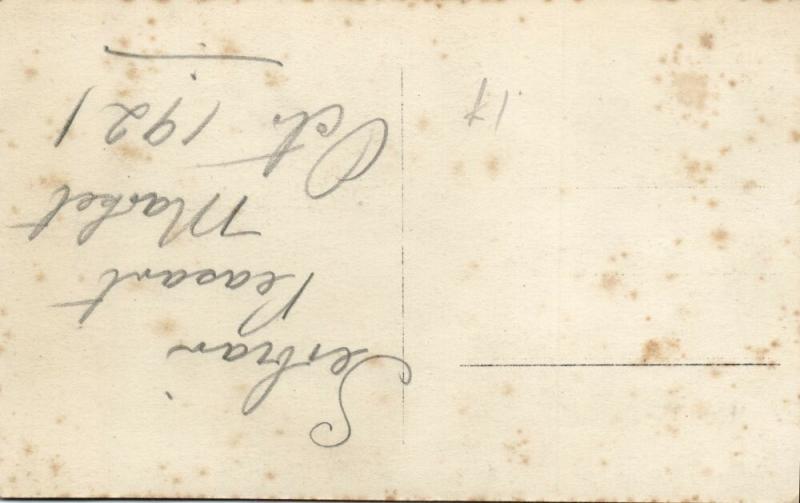 Serbian
Peasant
Market
Oct. 1921